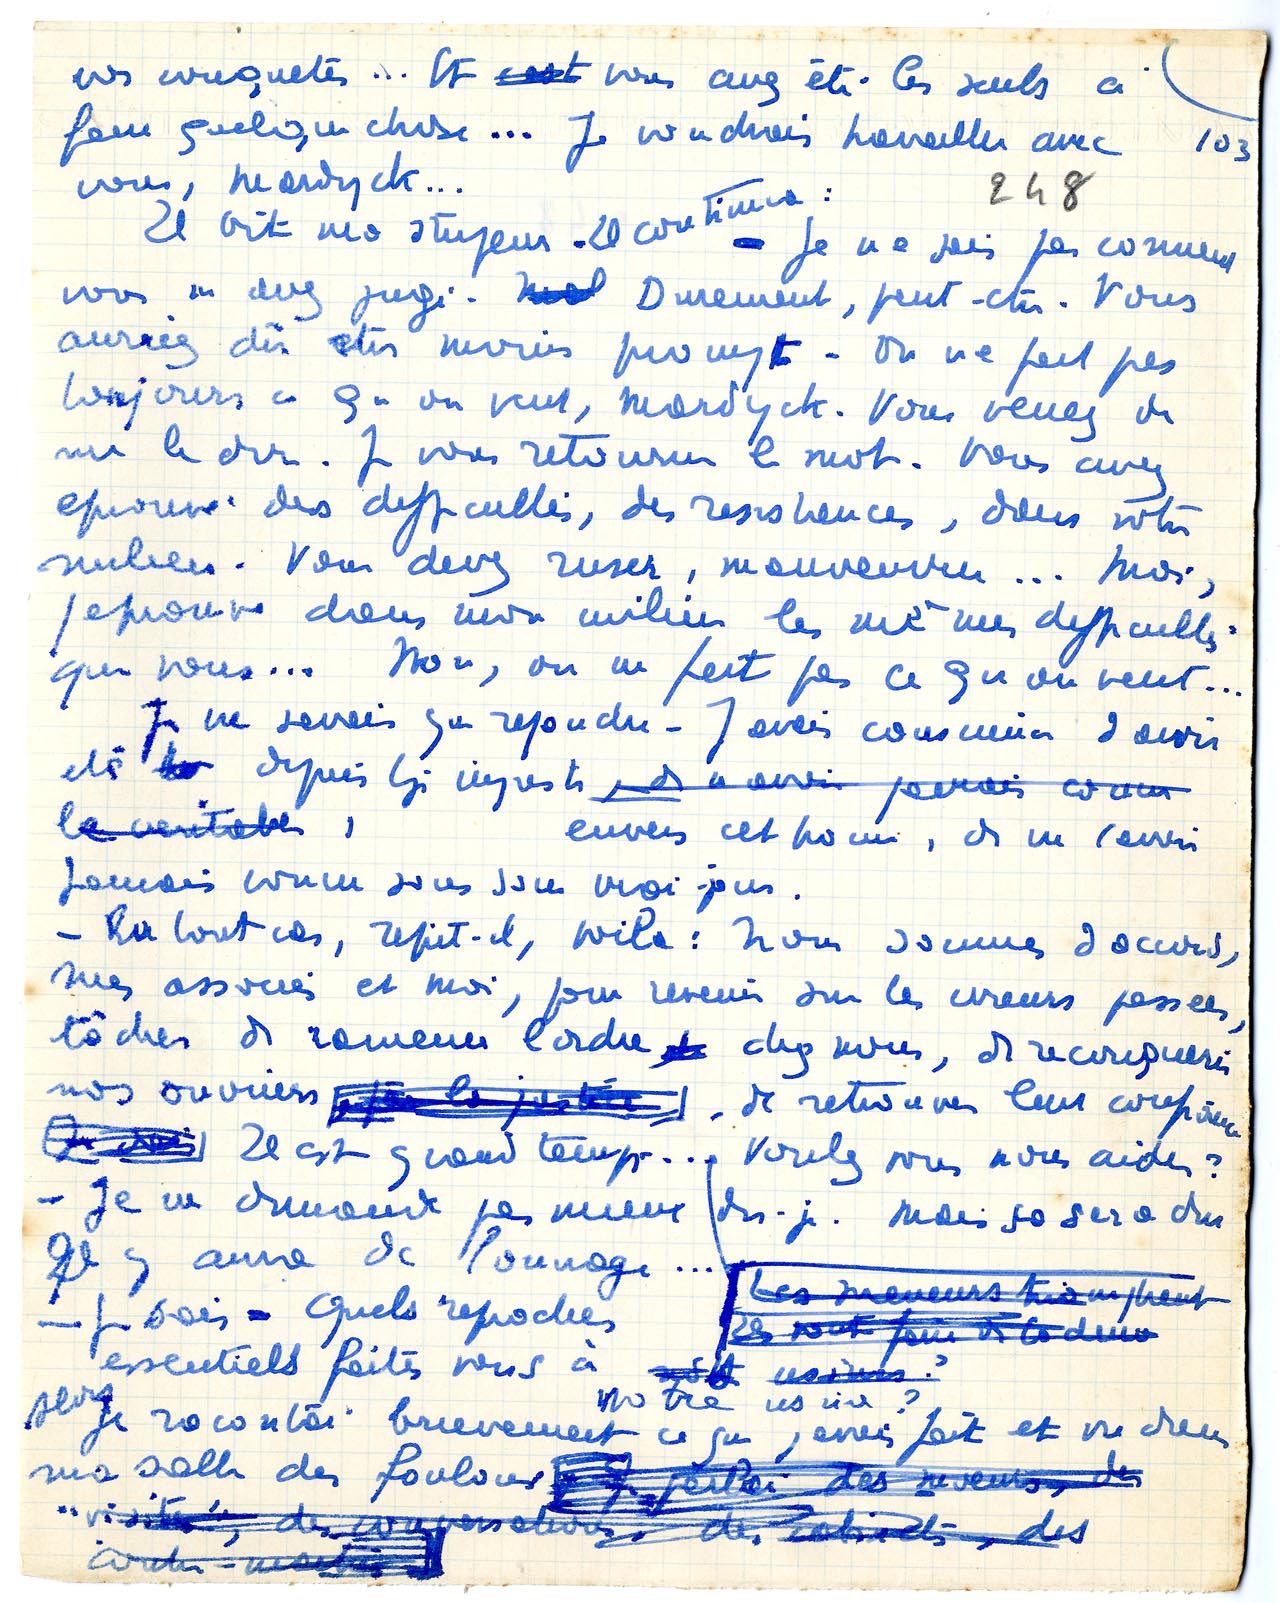 vos conquetes... Et ~~c'est~~ vous avez été les seuls à
faire quelque chose... Je voudrais travailler avec 103
vous, Mardyck... 248
Il vit ma stupeur. Il continua :
- Je ne sais pas comment
vous m'avez jugé. ~~Mal~~ Durement, peut-être. Vous
auriez dû être moins prompt - On ne fait pas
toujours ce qu'on veut, Mardyck. Vous venez de
me le dire. Je vous retourne le mot. Vous avez
eprouvé des difficultés, des resistances, dans votre
milieu. Vous devez ruser, manoeuvrer... Moi,
j'eprouve dans mon milieu les mêmes difficultés
que vous... Non, on ne fait pas ce qu'on veut...
Je ne savais que repondre - J'avais conscience d'avoir
été depuis injuste ~~, de n'avoir jamais connu~~
~~le veritable~~, envers cet homme, de ne l'avoir
jamais connu sous son vrai jour.
- En tout cas, reprit-il, voila : Nous sommes d'accord,
mes associés et moi, pour revenir sur les erreurs passées,
tâcher de ramener l'ordre chez nous, de reconquerir
nos ouvriers ~~, par la justice~~, de retrouver leur confiance
Il est grand temps... Voulez vous nous aider ?
- Je ne demande pas mieux dis-je. Mais ça sera dur
Il y aura de l'ouvrage...
~~Les meneurs triomphent~~
- Je sais - Quels reproches
~~Ils sont~~
essentiels faites vous à ~~usines ?~~
notre usine ?
Je racontai brievement ce que j'avais fait et vu dans
ma salle des foulons ~~Je parlai des meneurs, des~~
~~"visites", des conversations, des cabinets, des~~
~~contre-maitres~~